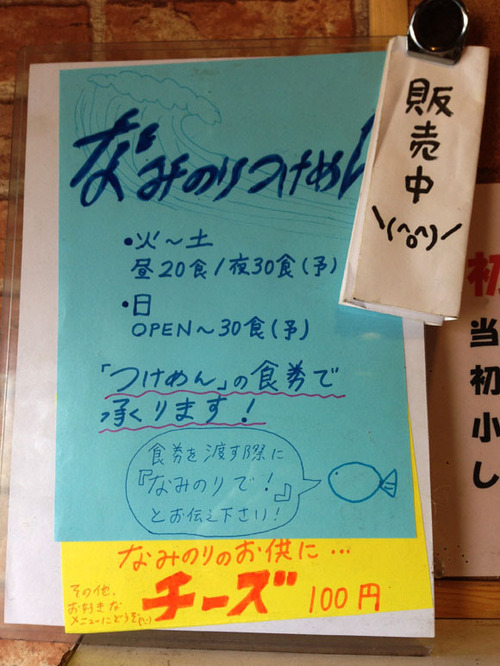 なみのりつけめん
販売中
\(^o^)/
・火～土
昼20食/夜30食(予)
・日
OPEN～30食(予)
「つけめん」の食券で
承ります！
食券を渡す際に
『なみのりで！』
とお伝え下さい！
なみのりのお供に…
チーズ 100円
その他、
お好きな
メニューにどうぞ(^^)
初
当
初
小
し